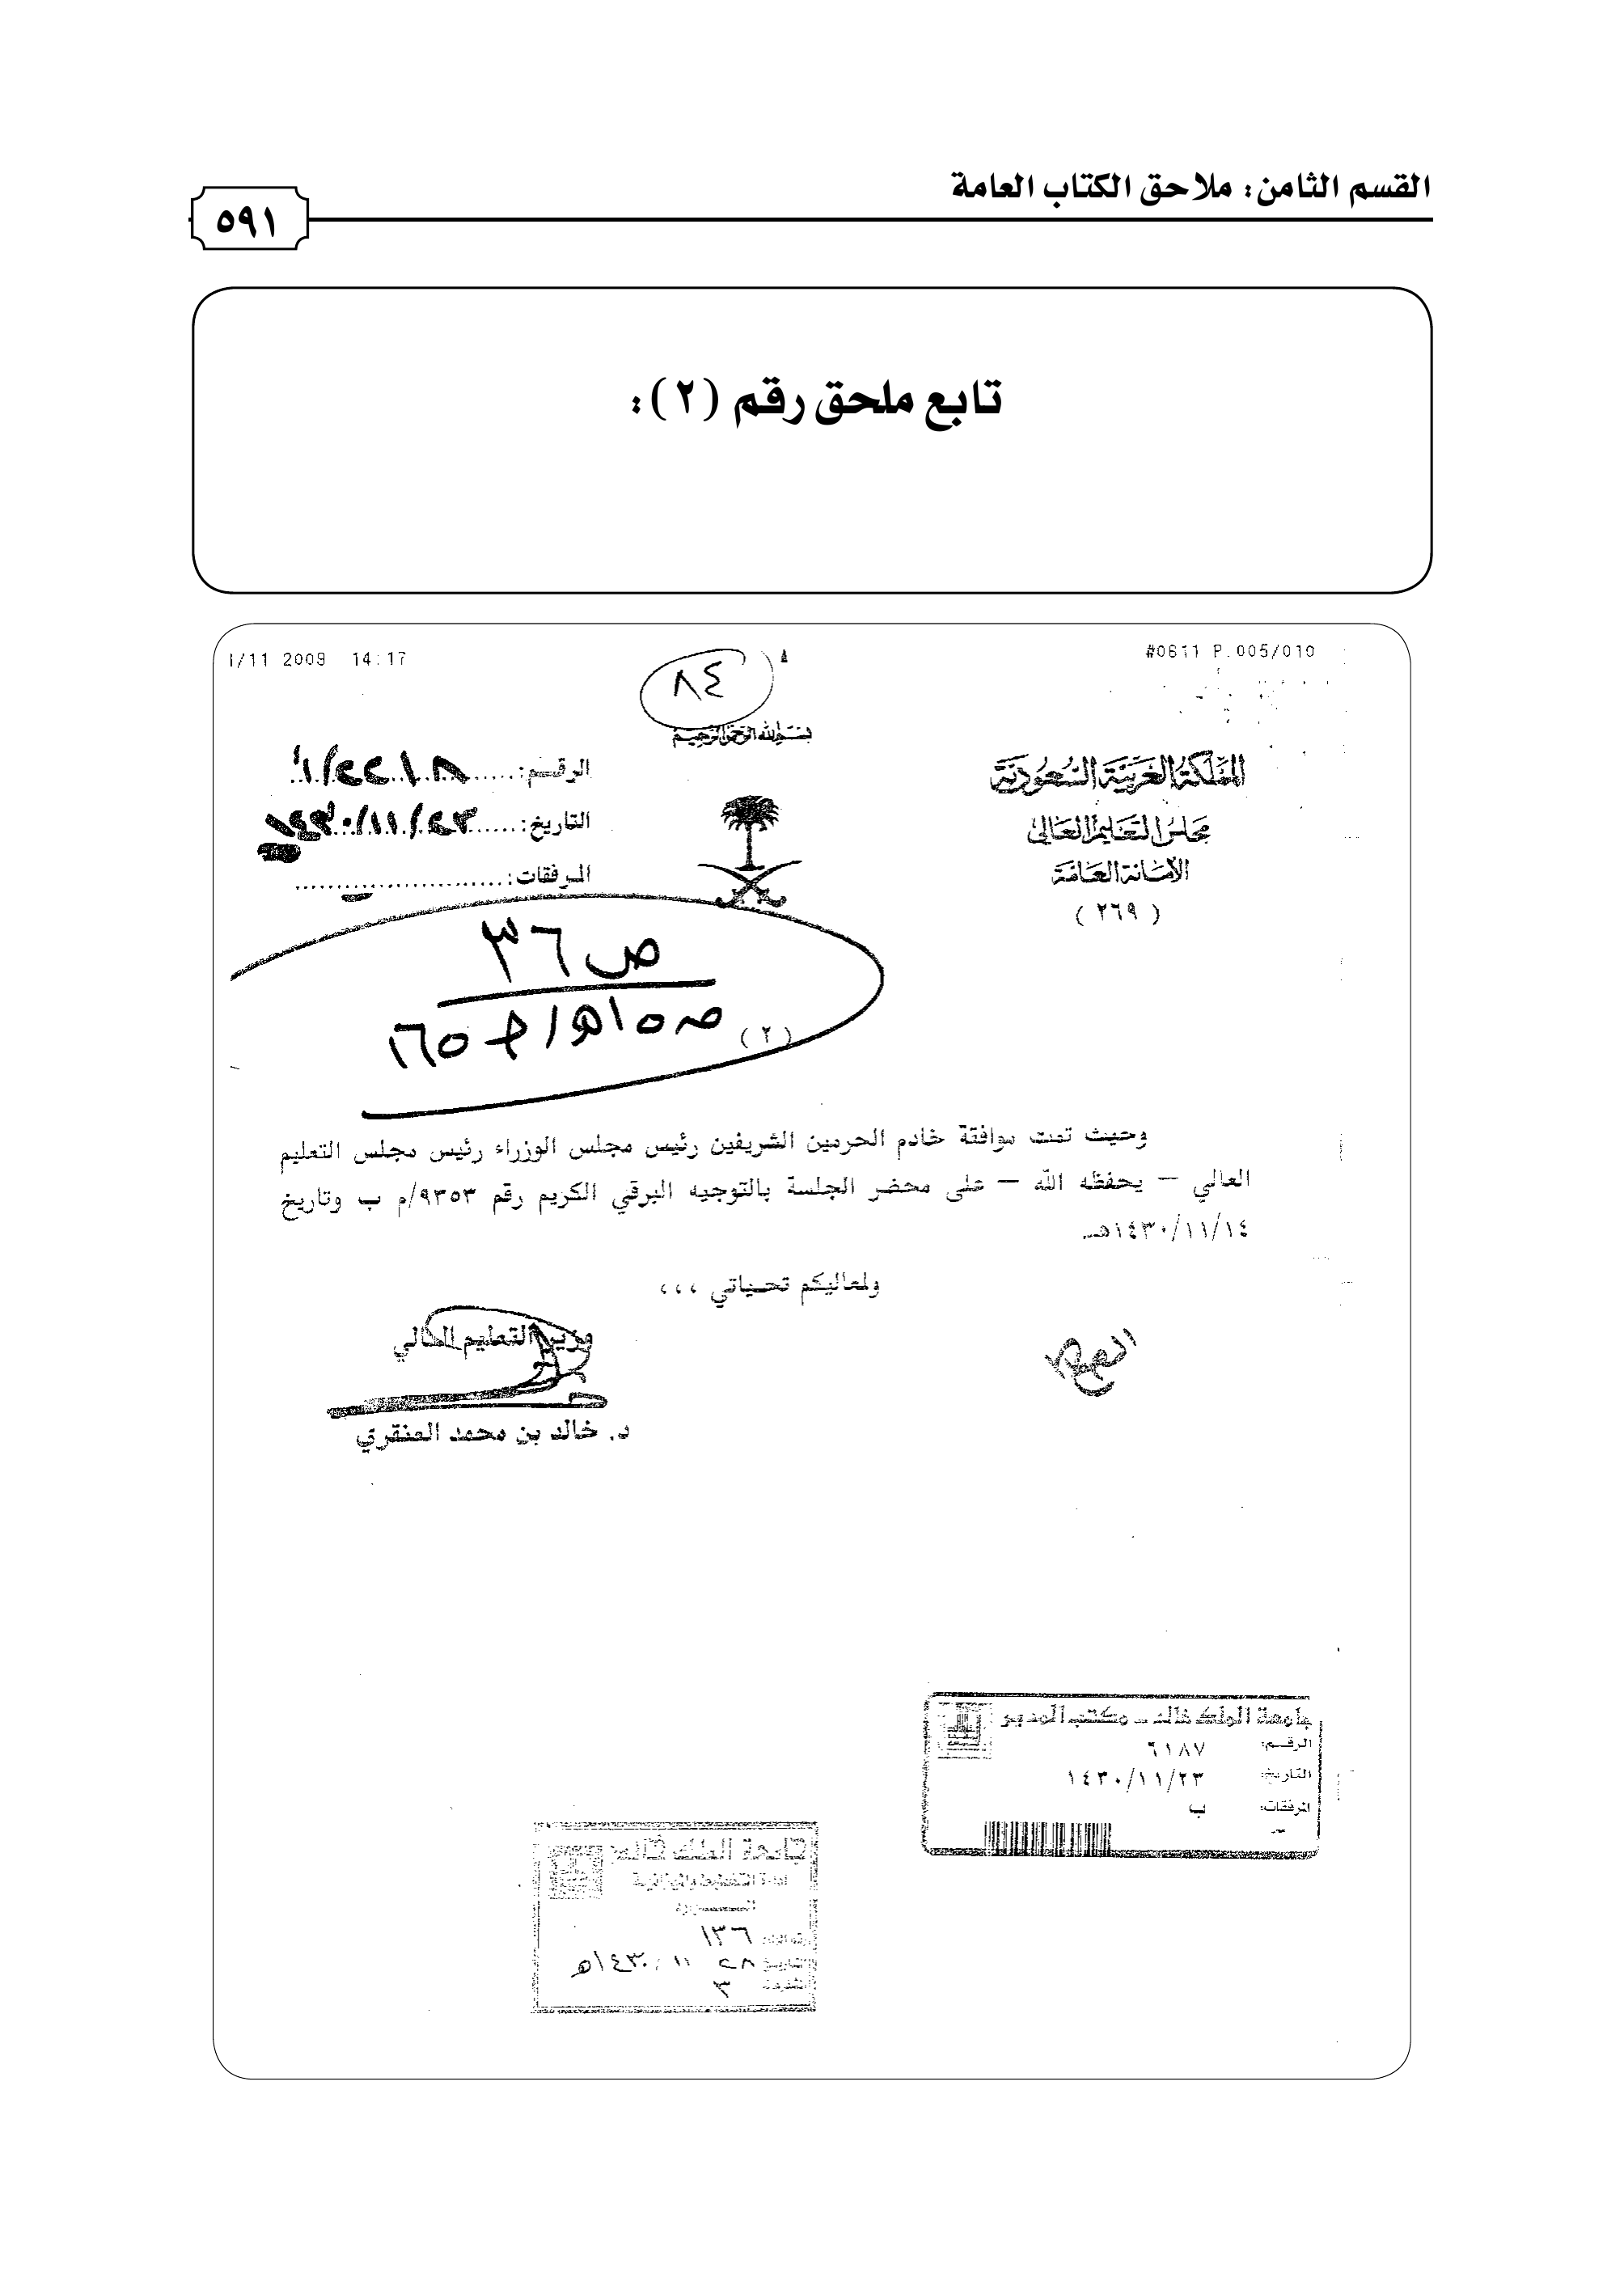 القسم الثامن: ملاحق الكتاب العامة
٥٩١
تابع ملحق رقم (٢):
1/11 2009 14:17
#0811 P.005/010
٨٤
بسم الله الرحمن الرحيم
المملكة العربية السعودية
مجلس التعليم العالي
الأمانة العامة
( ٢٦٩ )
الرقم:
التاريخ: ١٤٣٠/١١/٢٣
المرفقات:
ص ٣٦
(٢)
وحيث تمت موافقة خادم الحرمين الشريفين رئيس مجلس الوزراء رئيس مجلس التعليم
العالي – يحفظه الله – على محضر الجلسة بالتوجيه البرقي الكريم رقم ٩٣٥٣/م ب وتاريخ
١٤٣٠/١١/١٤هـ.
ولمعاليكم تحياتي ،،،
وزير التعليم العالي
د. خالد بن محمد العنقري
جامعة الملك خالد - مكتب المدير
الرقم: ٦١٨٧
التاريخ: ١٤٣٠/١١/٢٣
المرفقات: ب
١٣٦
٢٨ ١١ ١٤٣٠هـ
٣